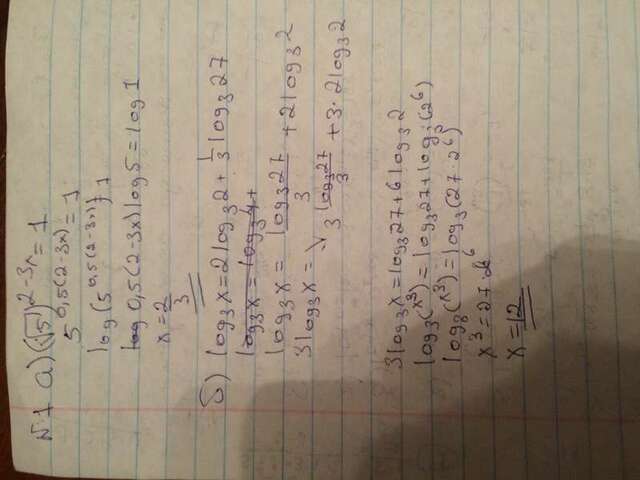 №1 а) (√5)^2-3x = 1
5^0,5(2-3x) = 1
log(5^0,5(2-3x)) 1
log 0,5(2-3x) log 5 = log 1
x = 2/3
б) log₃x = 2log₃2 + 1/3 log₃27
log₃x = log₃4+
log₃x = log₃27/3 + 2log₃2
3log₃x = 3 log₃27/3 + 3·2log₃2
3log₃x = log₃27 + 6log₃2
log₃(x³) = log₃27 + log₃(2⁶)
log₃(x³) = log₃(27·2⁶)
x³ = 27·2⁶
x = 12